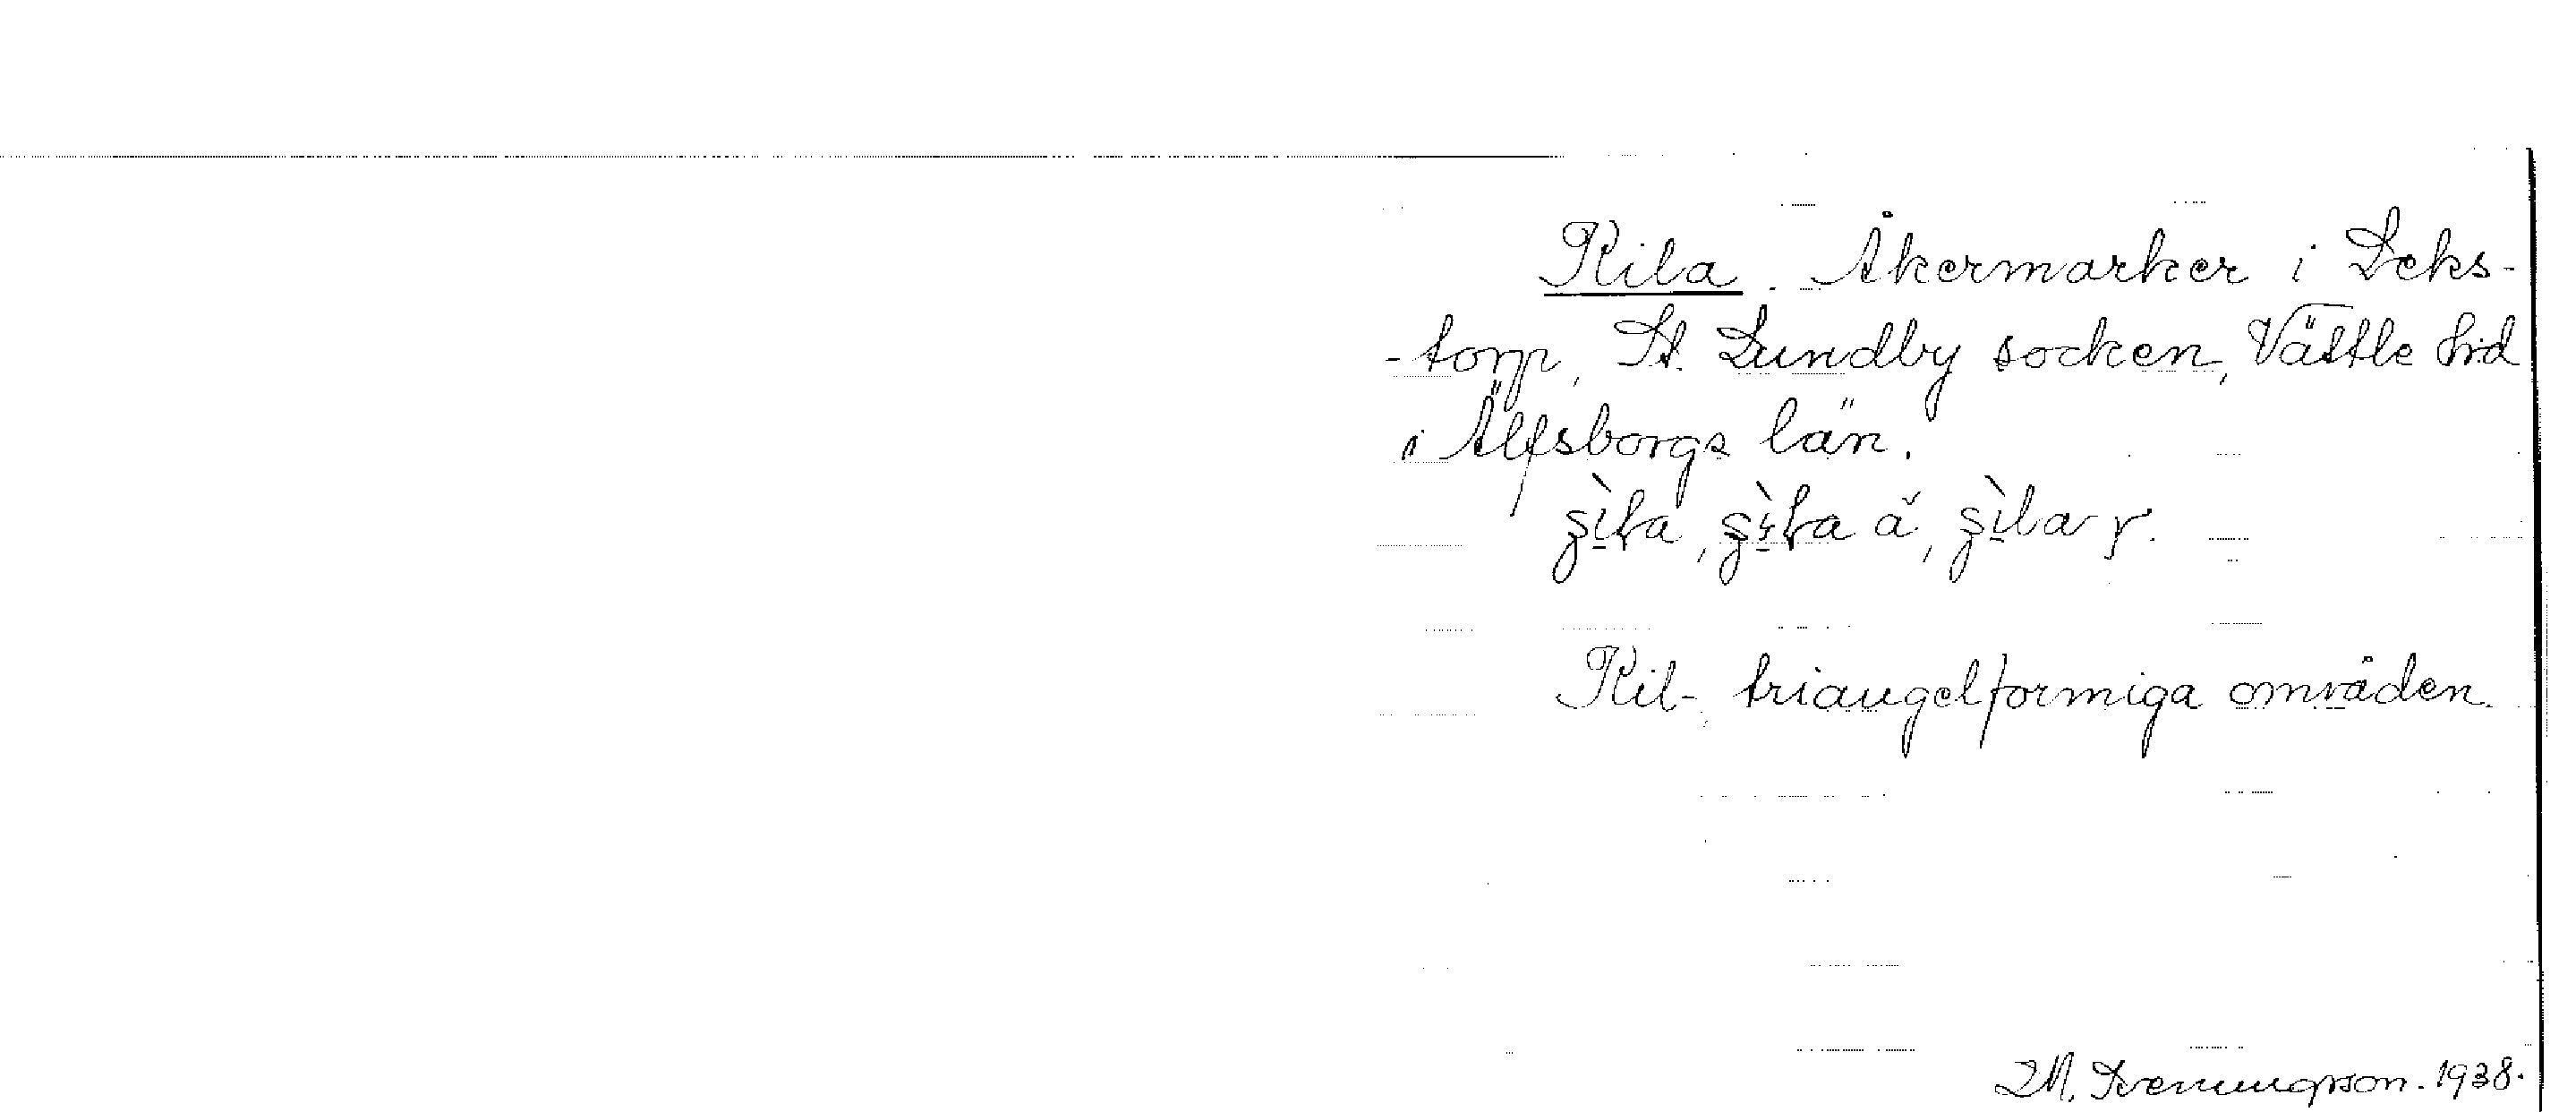 Kila. Åkermarker i Leks-
-torp, St. Lundby socken, Vättle hd
i Älfsborgs län.
Kil-, triangelformiga områden.
M. Svenungsson. 1938.